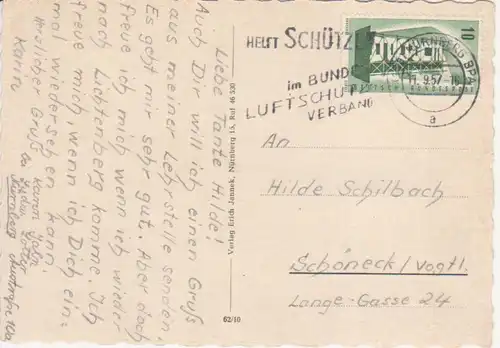 Liebe Tante Hilde!
Auch Dir will ich einen Gruß
aus meiner Lehrstelle senden.
Es geht mir sehr gut. Aber doch
freue ich mich wenn ich wieder
nach Lichtenberg komme. Ich
freue mich, wenn ich Dich ein-
mal wiedersehen kann.
Herzlicher Gruß
Karin
Karin
bei
Nürnberg
Verlag Erich Jannek, Nürnberg 15, Ruf 46 530
62/10
HELFT SCHÜTZEN
im BUNDES
LUFTSCHUTZ
VERBAND
NÜRNBERG BPA
11. 9. 57
a
10
DEUTSCHE BUNDESPOST
An
Hilde Schilbach
Schöneck/Vogtl.
Lange-Gasse 24